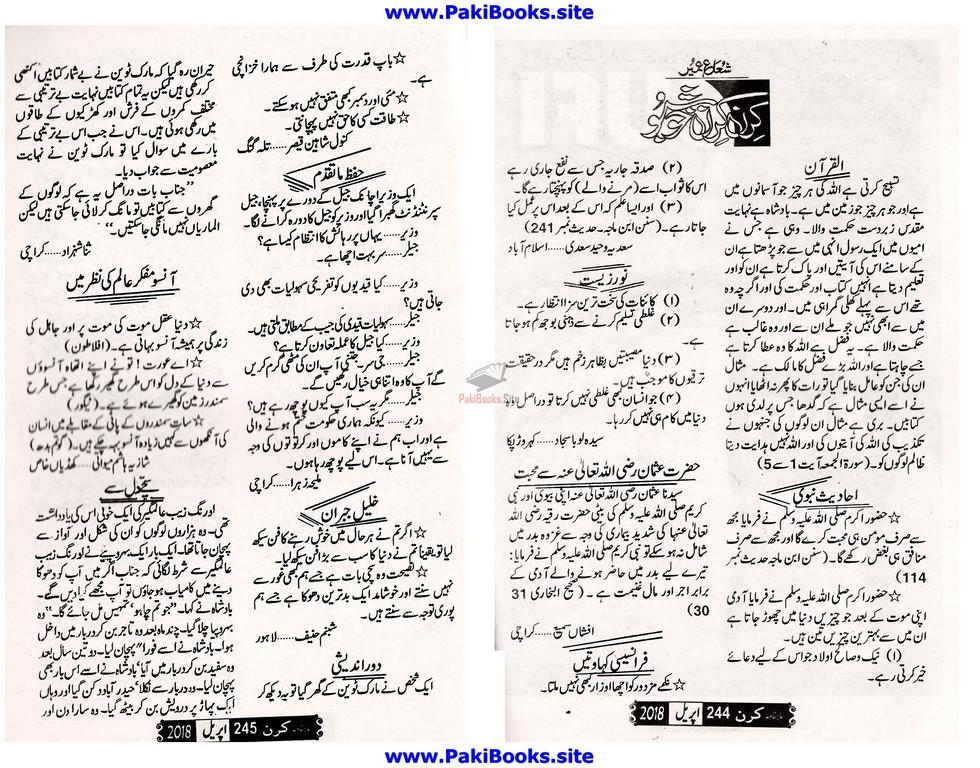 www.PakiBooks.site
شعاع عمیر
کرن کرن خوشبو
القرآن
تسبیح کرتی ہے اللہ کی ہر چیز جو آسمانوں میں
ہے اور جو ہر چیز جو زمین میں ہے۔ بادشاہ ہے نہایت
مقدس زبردست حکمت والا۔ وہی ہے جس نے
امیوں میں ایک رسول انہی میں سے جو پڑھتا ہے ان
کے سامنے اس کی آیتیں اور پاک کرتا ہے ان کو اور
تعلیم دیتا ہے انہیں کتاب اور حکمت کی اور اگرچہ وہ
تھے اس سے پہلے کھلی گمراہی میں۔ اور دوسرے ان
میں سے ابھی نہیں جو ملے ان سے اور وہ غالب ہے
حکمت والا ہے۔ یہ فضل ہے اللہ کا وہ عطا کرتا ہے
جسے چاہتا ہے اور اللہ بڑے فضل کا مالک ہے۔ مثال
ان کی جن کو عامل بنایا گیا تورات کا پھر نہ اٹھایا انہوں
نے اسے ایسی مثال ہے کہ گدھا جس پر لدی ہوں
کتابیں۔ بری ہے مثال ان لوگوں کی جنہوں نے
تکذیب کی اللہ کی آیتوں کی اور اللہ نہیں ہدایت دیتا
ظالم لوگوں کو۔ (سورۃ الجمعہ آیت 1 سے 5)
احادیث نبویؐ
☆ حضور اکرم صلی اللہ علیہ وسلم نے فرمایا مجھ
سے صرف مومن ہی محبت کرے گا اور مجھ سے صرف
منافق ہی بغض رکھے گا۔ (سنن ابن ماجہ حدیث نمبر
114)
☆ حضور اکرم صلی اللہ علیہ وسلم نے فرمایا آدمی
اپنی موت کے بعد جو چیزیں دنیا میں چھوڑ جاتا ہے
ان میں سے بہترین چیزیں تین ہیں۔
(۱) نیک و صالح اولاد جو اس کے لیے دعائے
خیر کرتی رہے۔
(۲) صدقہ جاریہ جس سے نفع جاری رہے
اس کا ثواب اسے (مرنے والے) کو پہنچتا رہے گا۔
(۳) اور ایسا علم کہ اس کے بعد اس پر عمل کیا
جاتا رہے۔ (سنن ابن ماجہ۔ حدیث نمبر 241)
سعدیہ وحید سعدی......اسلام آباد
نور زیست
(۱) کائنات کی سخت ترین سزا انتظار ہے۔
(۲) غلطی تسلیم کرنے سے ذہنی بوجھ کم ہو جاتا
ہے۔
(۳) دنیا مصیبتیں بظاہر زخم ہیں مگر در حقیقت
ترقیوں کا موجب ہیں۔
(۴) جو انسان بھی غلطی نہیں کرتا تو دراصل وہ
دنیا میں کام ہی نہیں کر رہا۔
سیدہ لوبا سجاد......کہروڑ پکا
حضرت عثمان رضی اللہ تعالیٰ عنہ سے محبت
سیدنا عثمان رضی اللہ تعالیٰ عنہ اپنی بیوی اور نبی
کریم صلی اللہ علیہ وسلم کی بیٹی حضرت رقیہ رضی اللہ
تعالیٰ عنہا کی شدید بیماری کی وجہ سے غزوہ بدر میں
شامل نہ ہو سکے تو نبی کریم صلی اللہ علیہ وسلم نے فرمایا:
تیرے لیے بدر میں حاضر ہونے والے آدمی کے
برابر اجر اور مال غنیمت ہے۔ (صحیح البخاری 31
30)
افشاں سمیع......کراچی
فرانسیسی کہاوتیں
☆ نکمے مزدور کو اچھا اوزار کبھی نہیں ملتا۔
ماہنامہ کرن 244 اپریل 2018
☆ باپ قدرت کی طرف سے ہمارا خزانچی
ہے۔
☆ مئی اور دسمبر کبھی متفق نہیں ہو سکتے۔
☆ طاقت کسی کا حق نہیں پہچانتی۔
کنول شاہین قیصر......تلہ گنگ
حفظ ما تقدم
ایک وزیر اچانک جیل کے دورے پر پہنچا، جیل
سپرنٹنڈنٹ گھبرا گیا اور وزیر کو جیل کا دورہ کرانے لگا۔
وزیر......یہاں پر رہائش کا انتظام کیسا ہے؟
جیلر......سر بہت اچھا ہے۔
وزیر......کیا قیدیوں کو تفریحی سہولیات بھی دی
جاتی ہیں؟
جیلر......سہولیات قیدی کی جیب کے مطابق ملتی ہیں۔
وزیر......کیا جیل کا عملہ تعاون کرتا ہے؟
جیلر......جی سر۔ جتنی آپ ان کی مٹھی گرم کریں
گے آپ کا وہ اتنا ہی خیال رکھیں گے۔
جیلر......مگر یہ سب آپ کیوں پوچھ رہے ہیں؟
وزیر......کیونکہ ہماری حکومت ختم ہونے والی
ہے اور اب ہم نے اپنے کاموں اور کرتوتوں کی وجہ
سے یہیں آنا ہے۔ اس لیے پوچھ رہا ہوں۔
ملیحہ زہرا......کراچی
خلیل جبران
☆ اگر تم نے ہر حال میں خوش رہنے کا فن سیکھ
لیا تو یقیناً تم نے دنیا کا سب سے بڑا فن سیکھ لیا۔
☆ نصیحت وہ سچی بات ہے جسے ہم کبھی غور سے
نہیں سنتے اور خوشامد ایک بدترین دھوکا ہے جسے ہم
پوری توجہ سے سنتے ہیں۔
شبنم حنیف......لاہور
دور اندیشی
ایک شخص نے مارک ٹوین کے گھر گیا تو یہ دیکھ کر
حیران رہ گیا کہ مارک ٹوین نے بے شمار کتابیں اکٹھی
کر رکھی ہیں لیکن یہ تمام کتابیں نہایت بے ترتیبی سے
مختلف کمروں کے فرش اور کھڑکیوں کے طاقوں
میں رکھی ہوئی ہیں۔ اس نے جب اس بے ترتیبی کے
بارے میں سوال کیا تو مارک ٹوین نے نہایت
معصومیت سے جواب دیا۔
”جناب بات دراصل یہ ہے کہ لوگوں کے
گھروں سے کتابیں تو مانگ کر لائی جا سکتی ہیں لیکن
الماریاں نہیں مانگی جا سکتیں۔“
ثنا شہزاد......کراچی
آنسو مفکر عالم کی نظر میں
☆ دنیا عقل موت کی موت پر اور جاہل کی
زندگی پر ہمیشہ آنسو بہاتی ہے۔ (افلاطون)
☆ اے عورت! تو نے اپنے اتھاہ آنسوؤں
سے دنیا کے دل کو اس طرح گھیر رکھا ہے جس طرح
سمندر زمین کو گھیرے ہوئے ہے۔ (ٹیگور)
☆ سات سمندروں کے پانی کے مقابلے میں انسان
کی آنکھوں سے کہیں زیادہ آنسو بہہ چکے ہیں۔ (گوتم بدھ)
شازیہ ہاشم میواتی......کھڈیاں خاص
کشکول سے
اورنگ زیب عالمگیر کی ایک خوبی اس کی یادداشت
تھی۔ وہ ہزاروں لوگوں کو ان کی شکل اور آواز سے
پہچان جاتا تھا۔ ایک بار ایک بہروپیے نے اورنگ زیب
عالمگیر سے شرط لگائی کہ جناب اگر میں آپ کو دھوکا
دینے میں کامیاب ہو جاؤں تو آپ مجھے کیا دیں گے۔
بادشاہ نے کہا۔ ”جو تم چاہو، تمہیں مل جائے گا۔“ وہ
بہروپیا چلا گیا۔ چند ماہ بعد وہ تاجر بن کر دربار میں داخل
ہوا۔ بادشاہ نے اسے فوراً پہچان لیا۔ دو تین سال بعد
وہ سفیر بن کر دربار میں آیا، بادشاہ نے اسے اس بار بھی
پہچان لیا۔ وہ دربار سے نکلا، حیدر آباد دکن گیا اور وہاں
ایک پہاڑ پر درویش بن کر بیٹھ گیا۔ وہ سارا دن اور
ماہنامہ کرن 245 اپریل 2018
PakiBooks.Site
www.PakiBooks.site